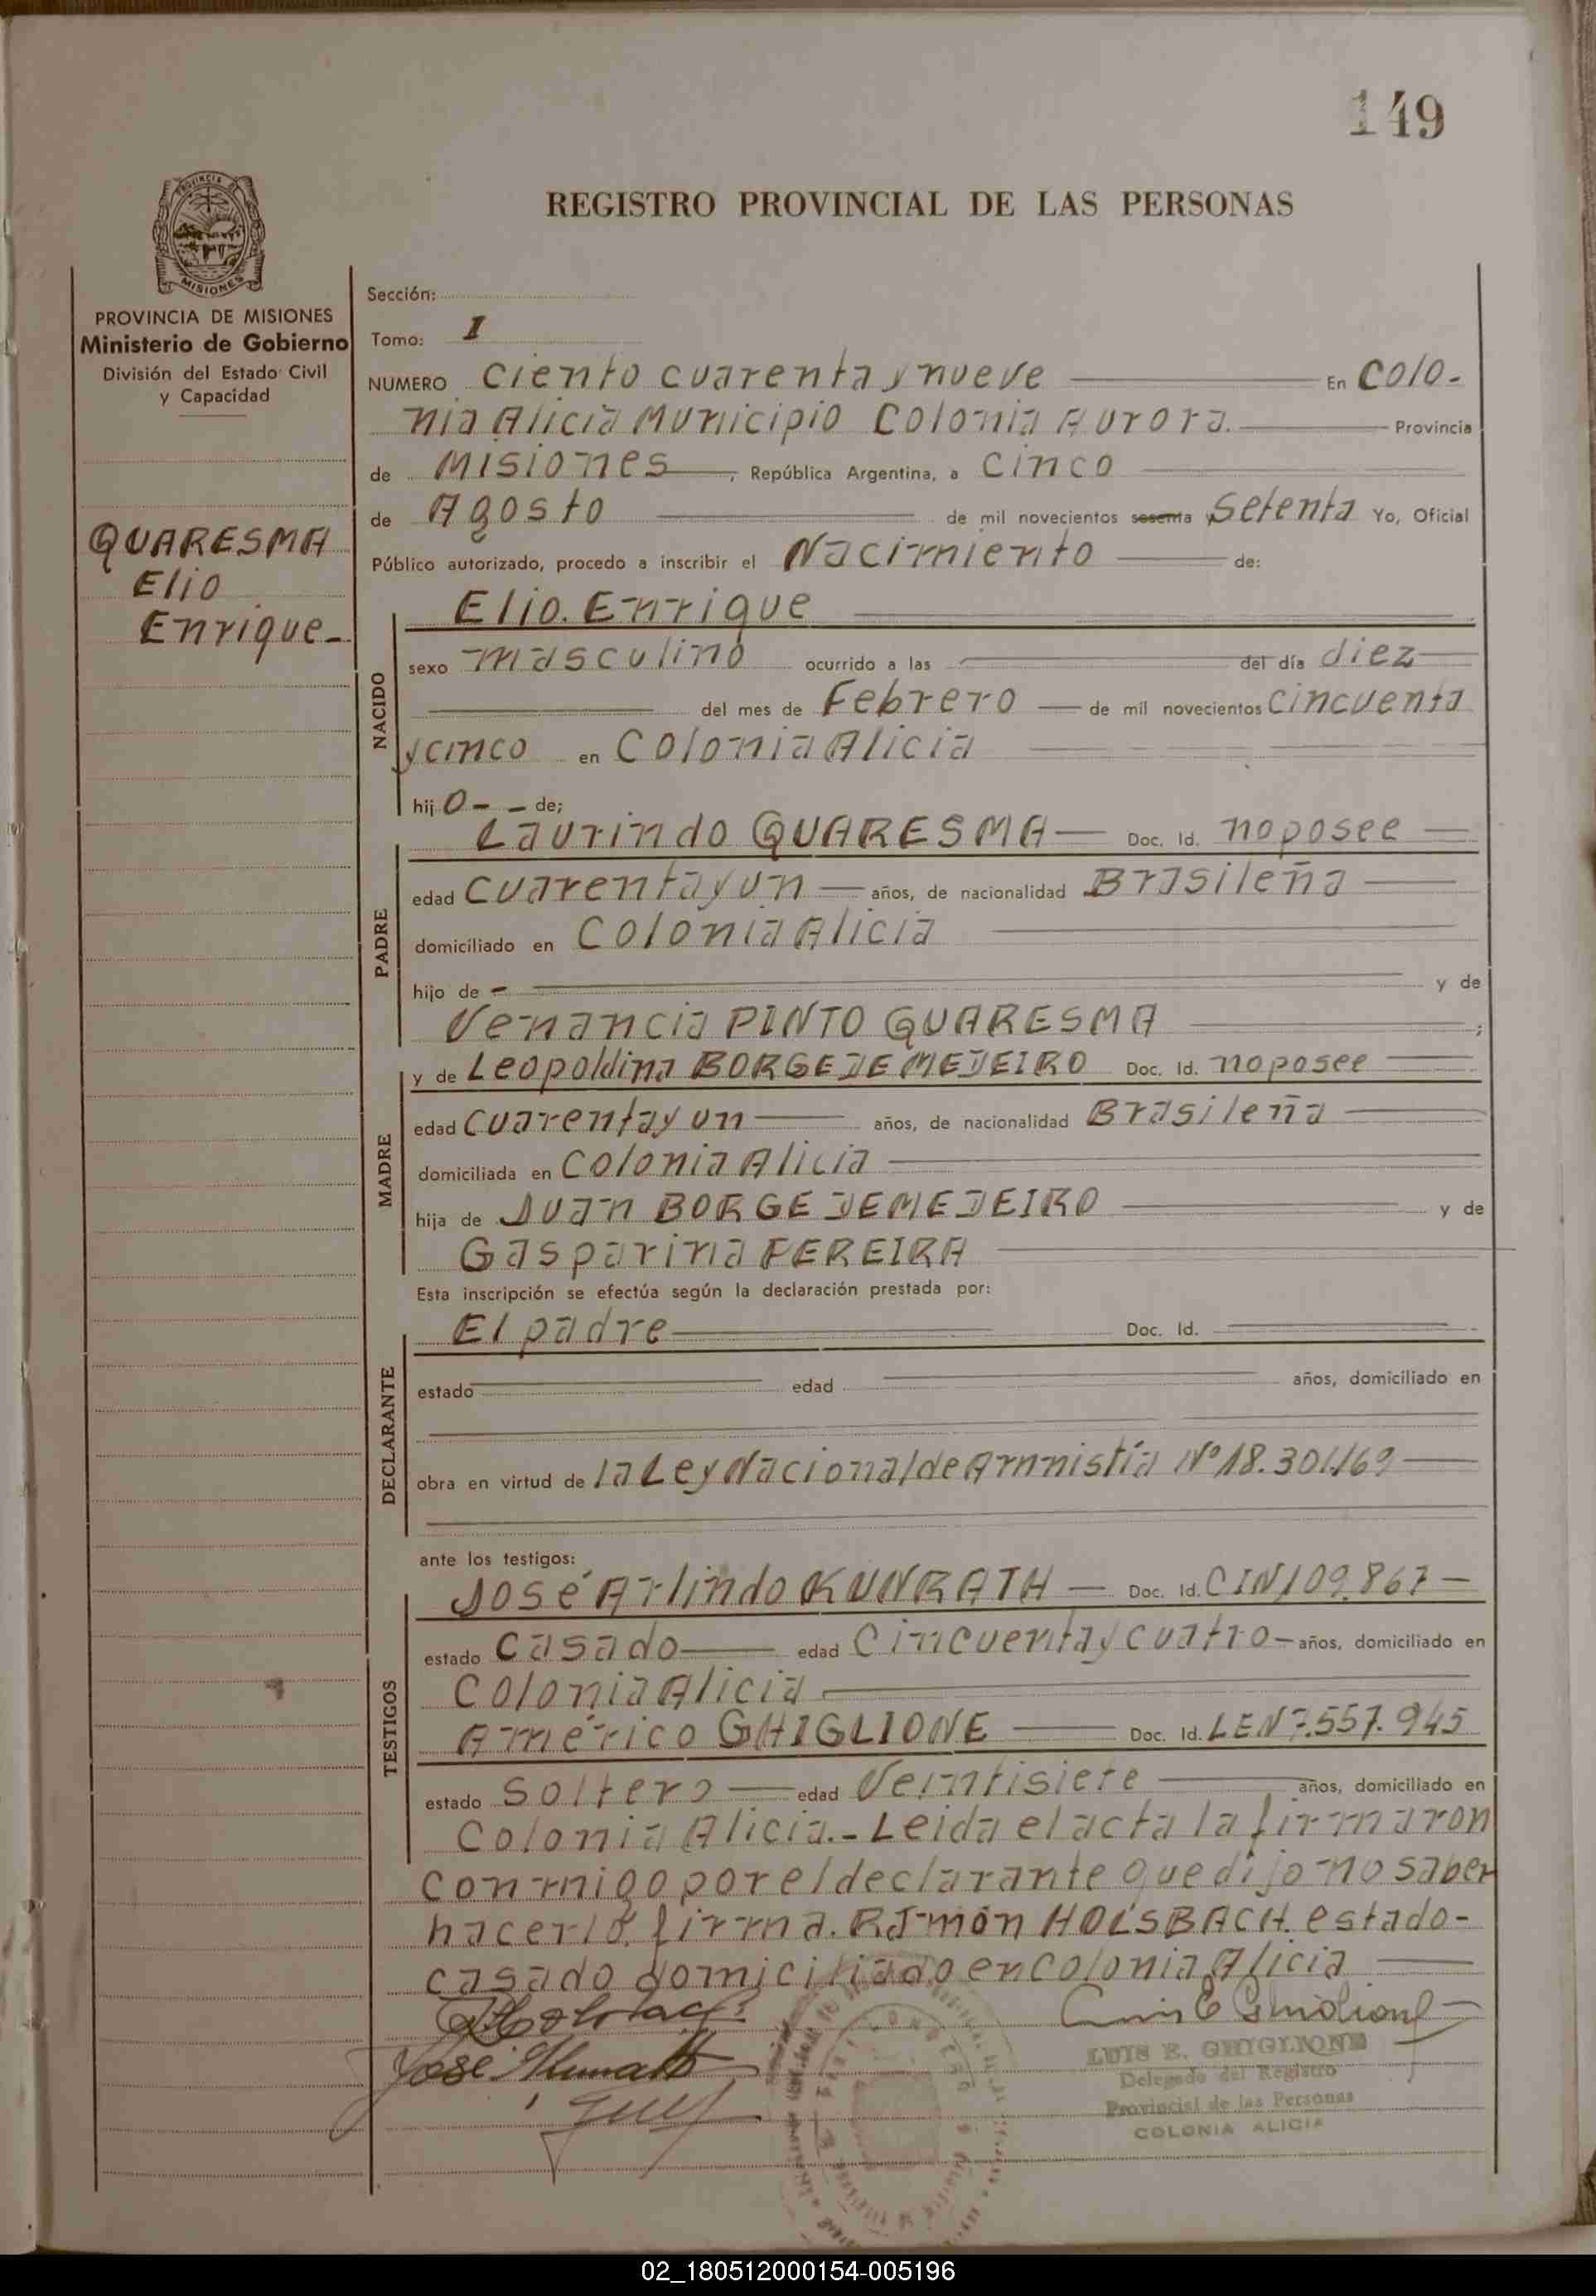 149
PROVINCIA DE
MISIONES
REGISTRO PROVINCIAL DE LAS PERSONAS
PROVINCIA DE MISIONES
Ministerio de Gobierno
División del Estado Civil
y Capacidad
QUARESMA
Elio
Enrique-
Sección:
Tomo: I
NUMERO Ciento cuarenta y nueve En Colo-
nia Alicia Municipio Colonia Aurora. Provincia
de Misiones, República Argentina, a Cinco
de Agosto de mil novecientos sesenta y Setenta Yo, Oficial
Público autorizado, procedo a inscribir el Nacimiento de:
Elio. Enrique
NACIDO
sexo masculino ocurrido a las del día diez
del mes de Febrero de mil novecientos cincuenta
y cinco en Colonia Alicia
hij o - - de;
Laurindo QUARESMA Doc. Id. no posee
PADRE
edad Cuarenta y un años, de nacionalidad Brasileña
domiciliado en Colonia Alicia
hijo de - y de
Venancia PINTO QUARESMA ;
y de Leopoldina BORGE DE MEDEIRO Doc. Id. no posee
MADRE
edad cuarenta y un años, de nacionalidad Brasileña
domiciliada en Colonia Alicia
hija de Juan BORGE DE MEDEIRO y de
Gasparina FEREIRA
Esta inscripción se efectúa según la declaración prestada por:
El padre Doc. Id.
DECLARANTE
estado edad años, domiciliado en
obra en virtud de la Ley Nacional de Amnistía Nº 18.301/69
ante los testigos:
José Arlindo KUNRATH Doc. Id. CIN 109.867
TESTIGOS
estado Casado edad Cincuenta y cuatro años, domiciliado en
Colonia Alicia
Américo GHIGLIONE Doc. Id. LEN 7.557.945
estado Soltero edad Veintisiete años, domiciliado en
Colonia Alicia.- Leida el acta la firmaron
conmigo por el declarante que dijo no saber
hacerlo, firma. Ramón HOLSBACH. estado-
casado domiciliado en Colonia Alicia
José Kunrath
LUIS E. GHIGLIONE
Delegado del Registro
Provincial de las Personas
COLONIA ALICIA
02_180512000154-005196